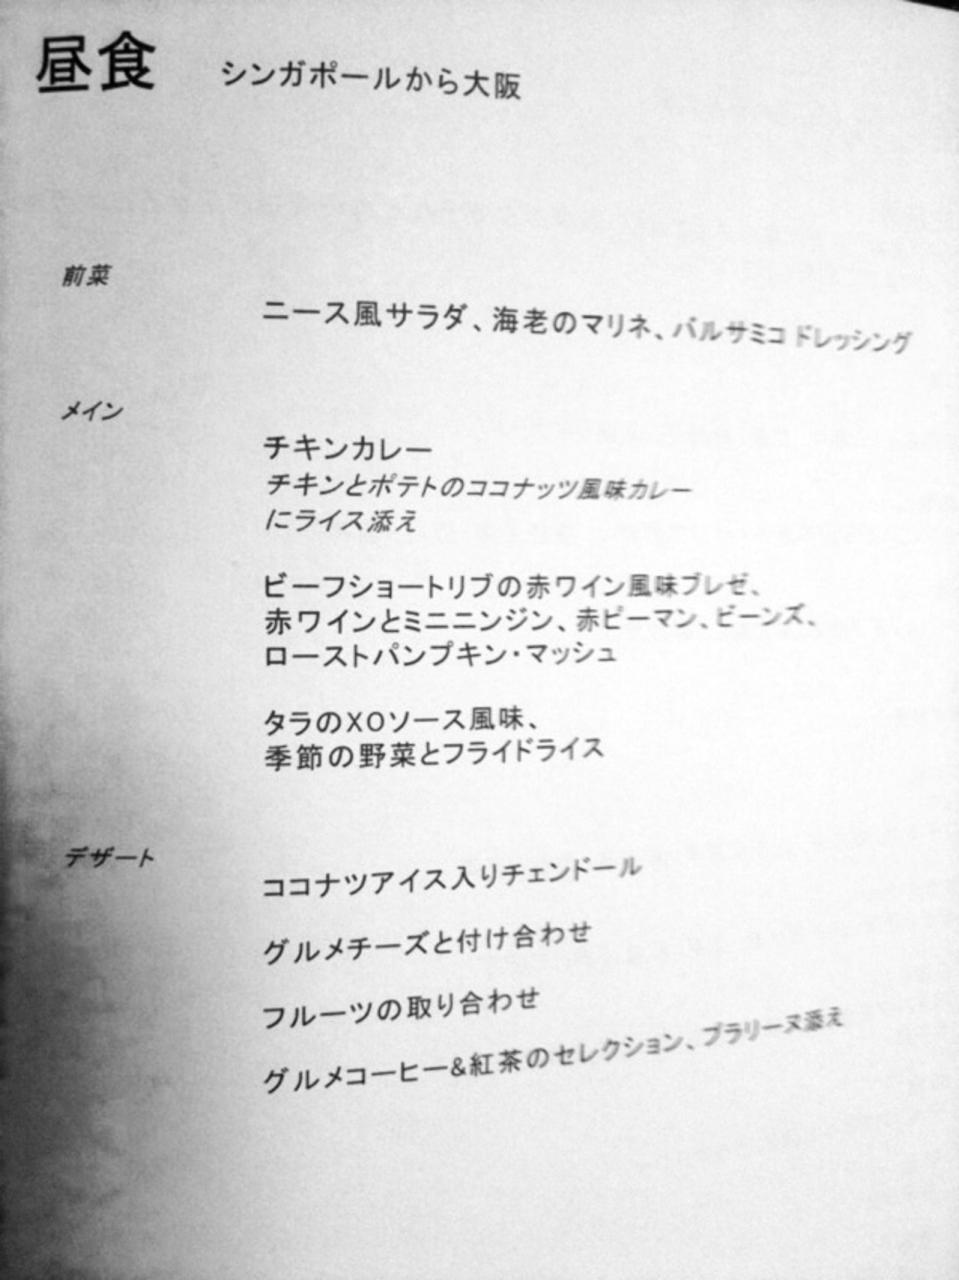 昼食 シンガポールから大阪
前菜
ニース風サラダ、海老のマリネ、バルサミコ ドレッシング
メイン
チキンカレー
チキンとポテトのココナッツ風味カレー
にライス添え
ビーフショートリブの赤ワイン風味ブレゼ、
赤ワインとミニニンジン、赤ピーマン、ビーンズ、
ローストパンプキン・マッシュ
タラのXOソース風味、
季節の野菜とフライドライス
デザート
ココナツアイス入りチェンドール
グルメチーズと付け合わせ
フルーツの取り合わせ
グルメコーヒー&紅茶のセレクション、プラリーヌ添え